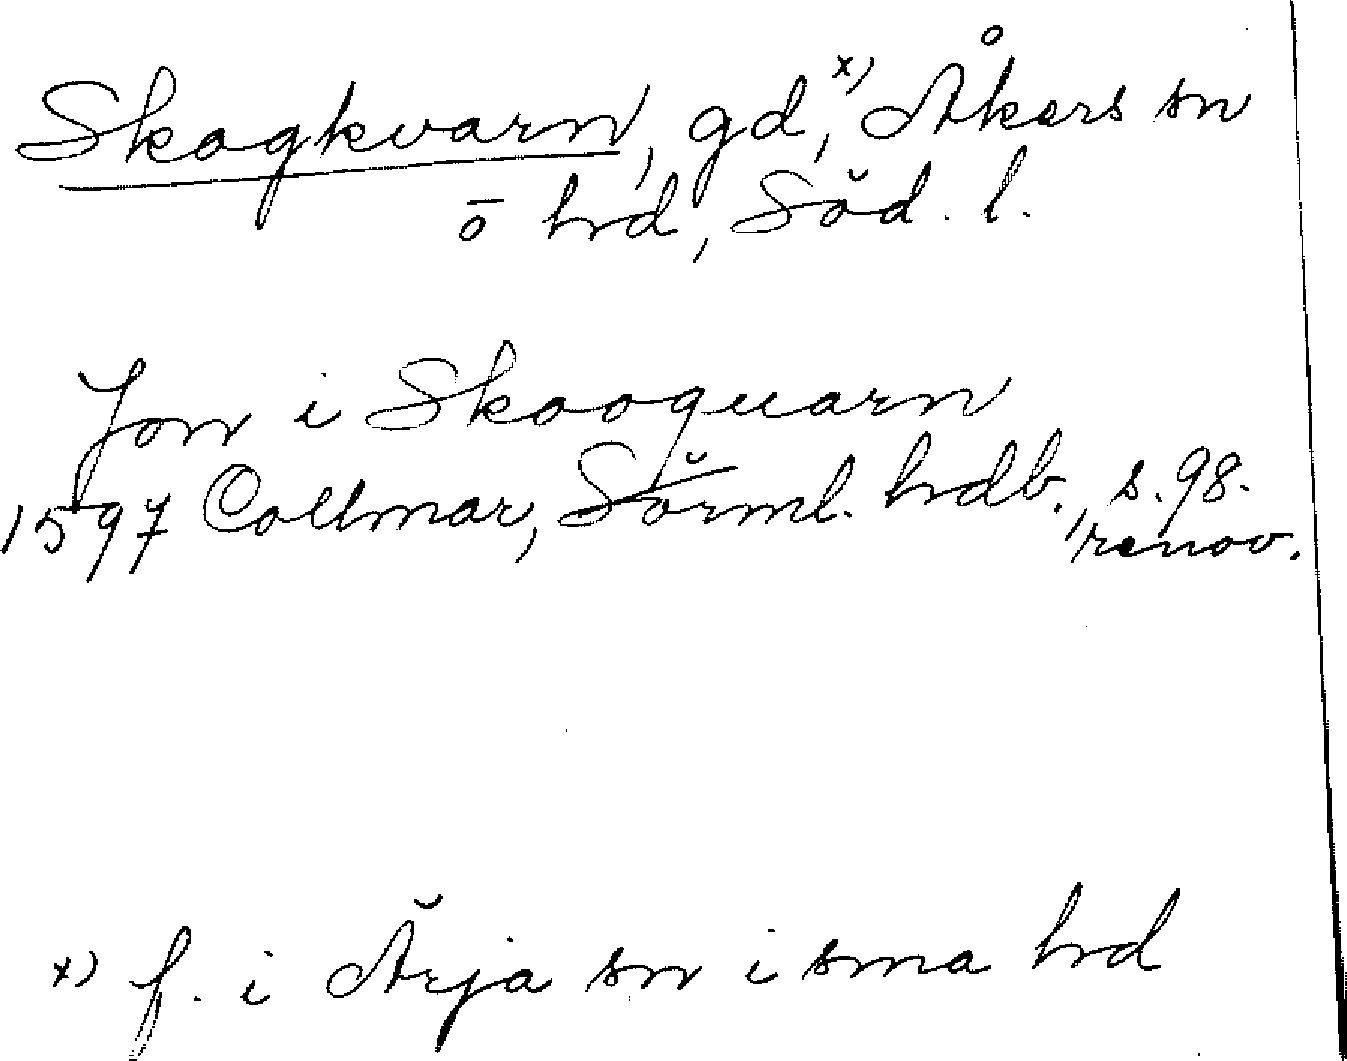 Skogkvarn, gd,x) Åkers sn
ö hrd, Söd. l.
Jon i Skooguarn
1597 Collmar, Sörml. hrdb., s. 98.
renov.
x) f. i Ärja sn i sma hrd